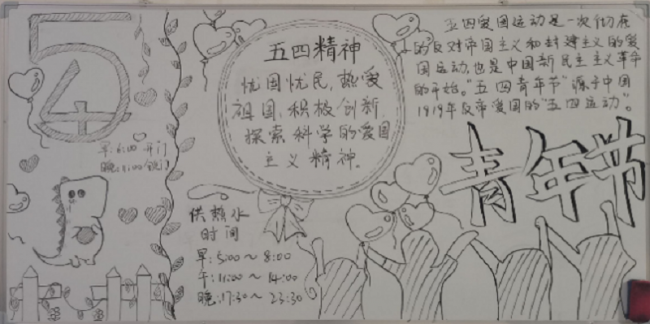 五四
早6:00开门
五四精神
忧国忧民,热爱
祖国,积极创新,
探索科学的爱国
主义精神.
供热水
时间
早:5:00～8:00
午:11:00～14:00
晚:17:30～23:30
五四爱国运动是一次彻底
的反对帝国主义和封建主义的爱
国运动,也是中国新民主主义革命
的开始。"五四青年节"源于中国
1919年反帝爱国的"五四运动"。
青年节